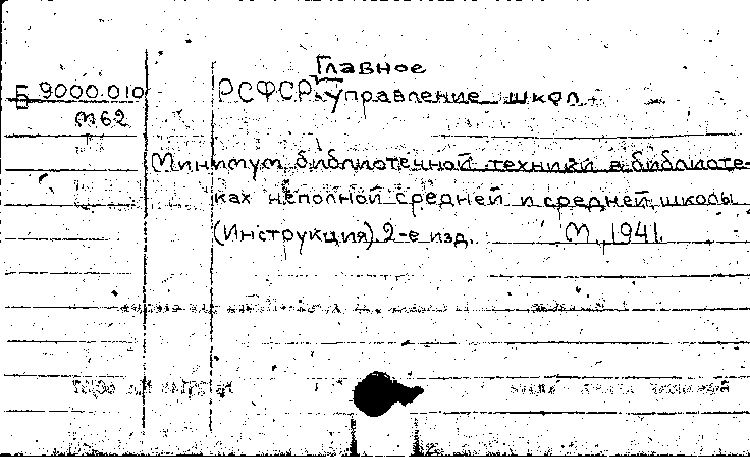 Главное
Б 9000.010 РСФСР. Управление школ
М62
Минимум библиотечной техники в библиоте-
ках неполной средней и средней школы
(Инструкция). 2-е изд. М., 1941.